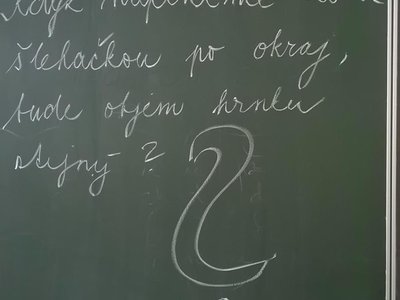 Když
šlehačkou po okraj,
bude objem hrnku
stejný?